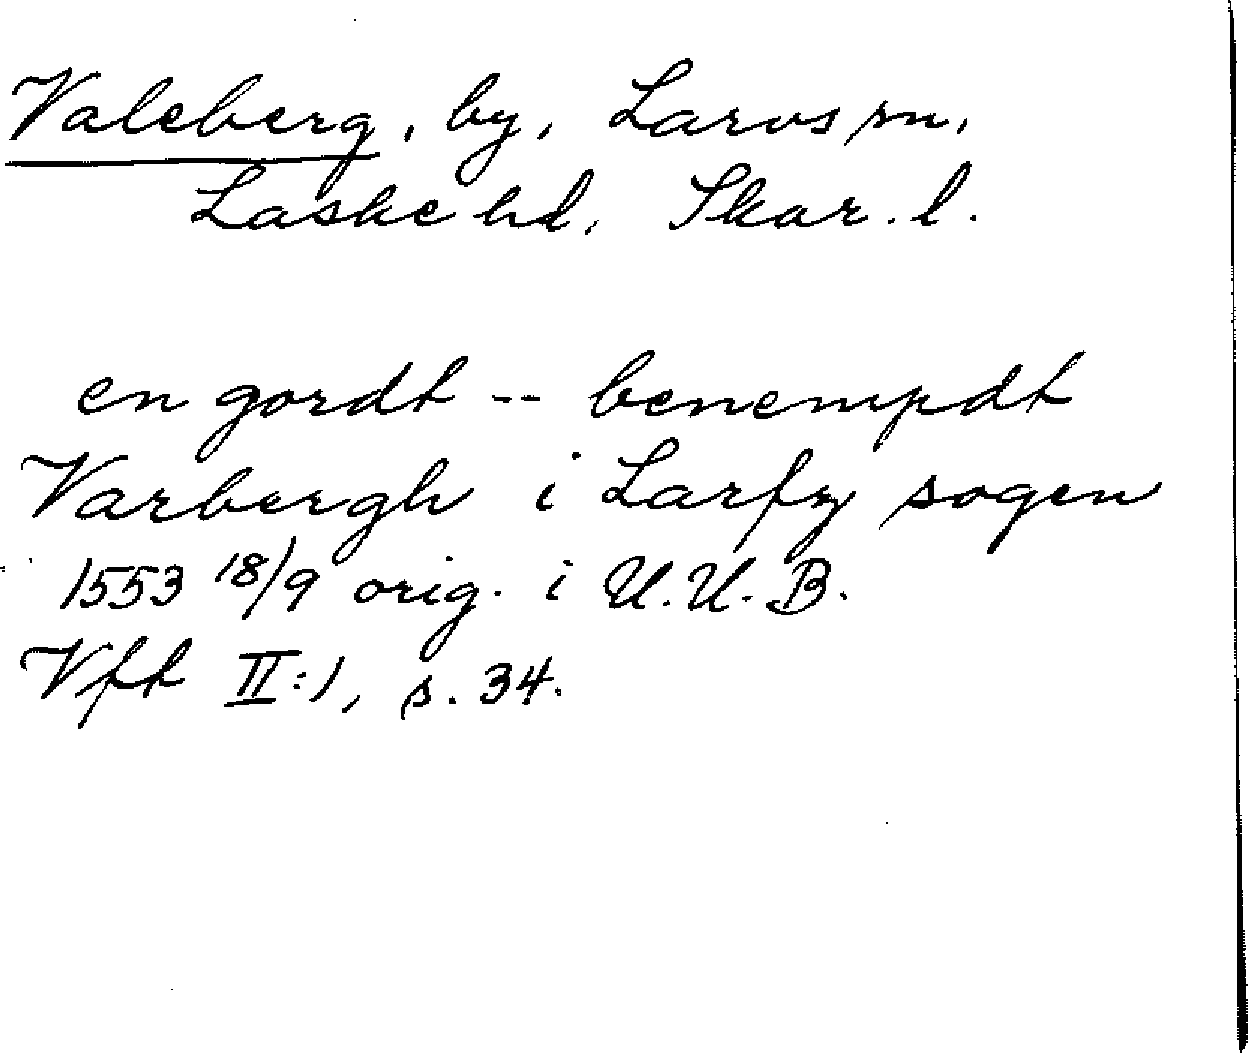 Valeberg, by, Larvs sn,
Laske hd, Skar. l.
en gordt -- benempdt
Varbergh i Larfz sogen
1553 18/9 orig. i U.U.B.
Vft II:1, s. 34.